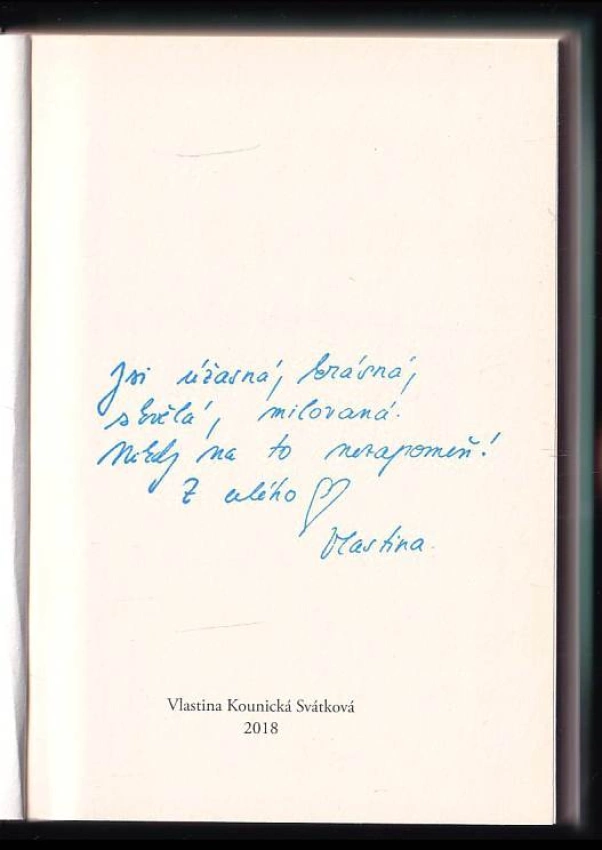 Jsi úžasná, krásná,
skvělá, milovaná.
Nikdy na to nezapomeň!
Z celého ♡
Vlastina.
Vlastina Kounická Svátková
2018